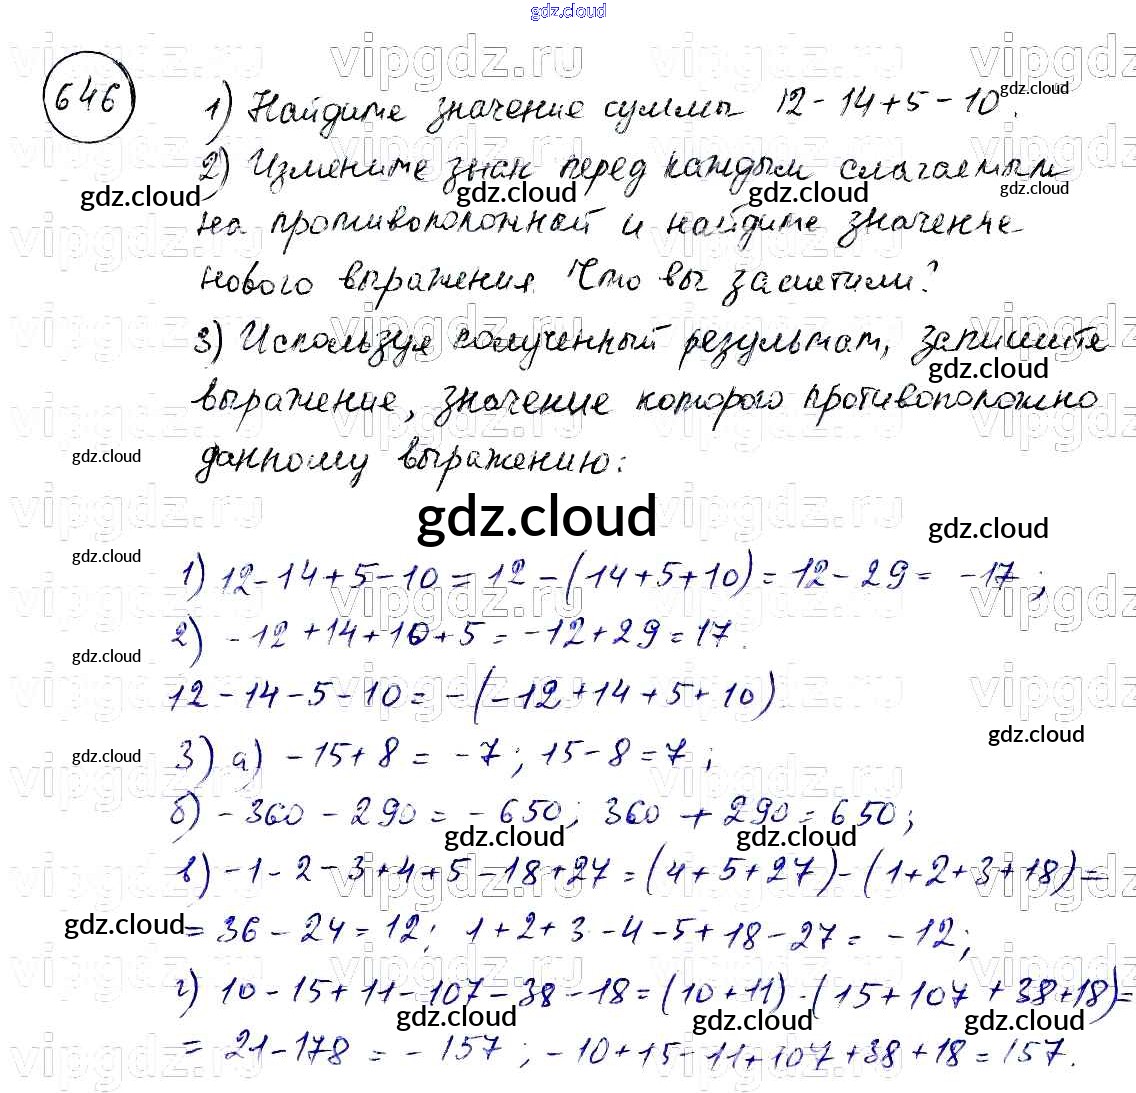 gdz.cloud
646
1) Найдите значение суммы 12 - 14 + 5 - 10.
2) Измените знак перед каждым слагаемым
на противоположной и найдите значение
нового выражения. Что вы заметили?
3) Используя полученный результат, запишите
выражение, значение которого противоположно
данному выражению:
1) 12 - 14 + 5 - 10 = 12 - (14 + 5 + 10) = 12 - 29 = -17;
2) -12 + 14 + 10 + 5 = -12 + 29 = 17.
12 - 14 - 5 - 10 = -(-12 + 14 + 5 + 10)
3) а) -15 + 8 = -7; 15 - 8 = 7;
б) -360 - 290 = -650; 360 + 290 = 650;
в) -1 - 2 - 3 + 4 + 5 - 18 + 27 = (4 + 5 + 27) - (1 + 2 + 3 + 18) =
= 36 - 24 = 12; 1 + 2 + 3 - 4 - 5 + 18 - 27 = -12;
г) 10 - 15 + 11 - 107 - 38 - 18 = (10 + 11) - (15 + 107 + 38 + 18) =
= 21 - 178 = -157; -10 + 15 - 11 + 107 + 38 + 18 = 157.